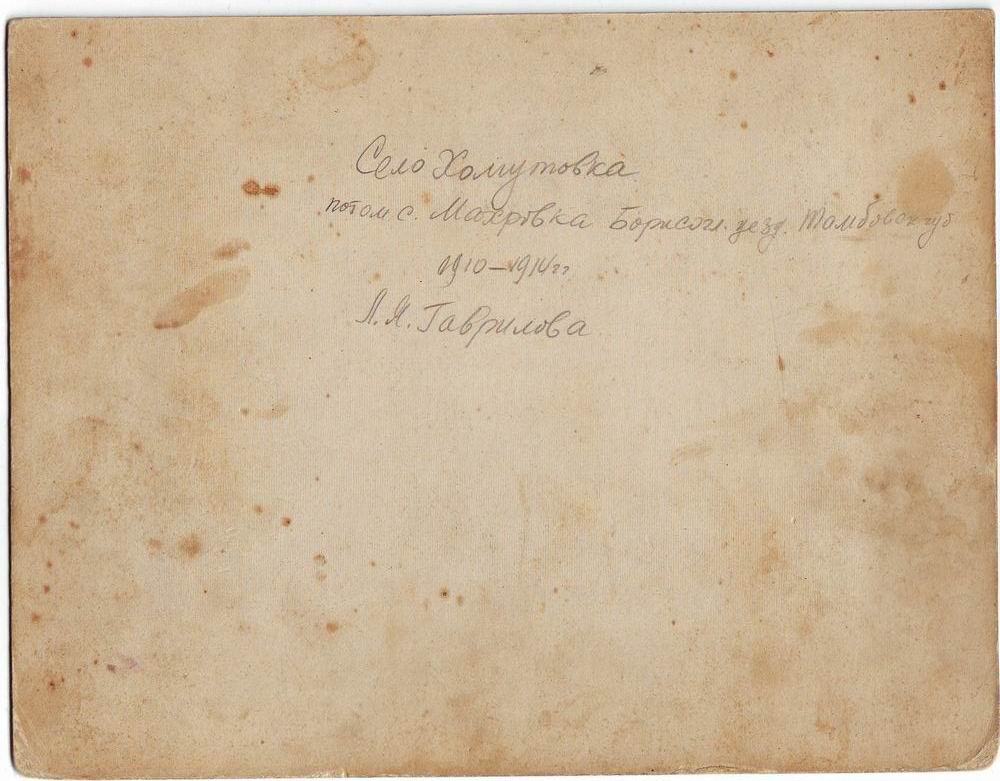 Село Хомутовка
потом с. Махровка Борисогл. уезд. Тамбовск губ
1910–1914гг
Л.Я. Гаврилова